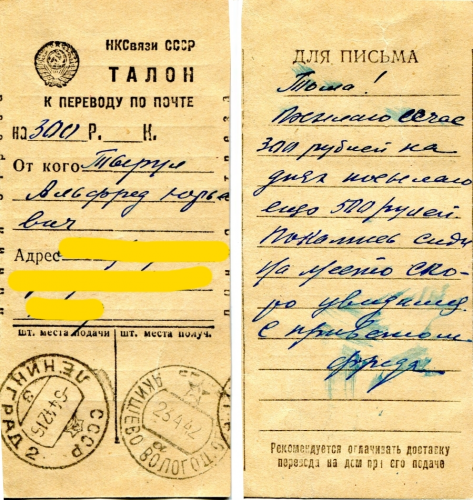 НКСвязи СССР
ТАЛОН
К ПЕРЕВОДУ ПО ПОЧТЕ
на 300 Р. К.
От кого
Альфред
вич
Адрес
шт. места подачи шт. места получ.
ЛЕНИНГРАД
СССР
23 4 42
ДЛЯ ПИСЬМА
Тома!
Посылаю сейчас
300 рублей на
днях посылаю
ещо 500 рублей.
Покамись сиди
на место ско-
ро увидимся.
С приветом
Фредя
Рекомендуется оплачивать доставку
перевода на дом при его подаче